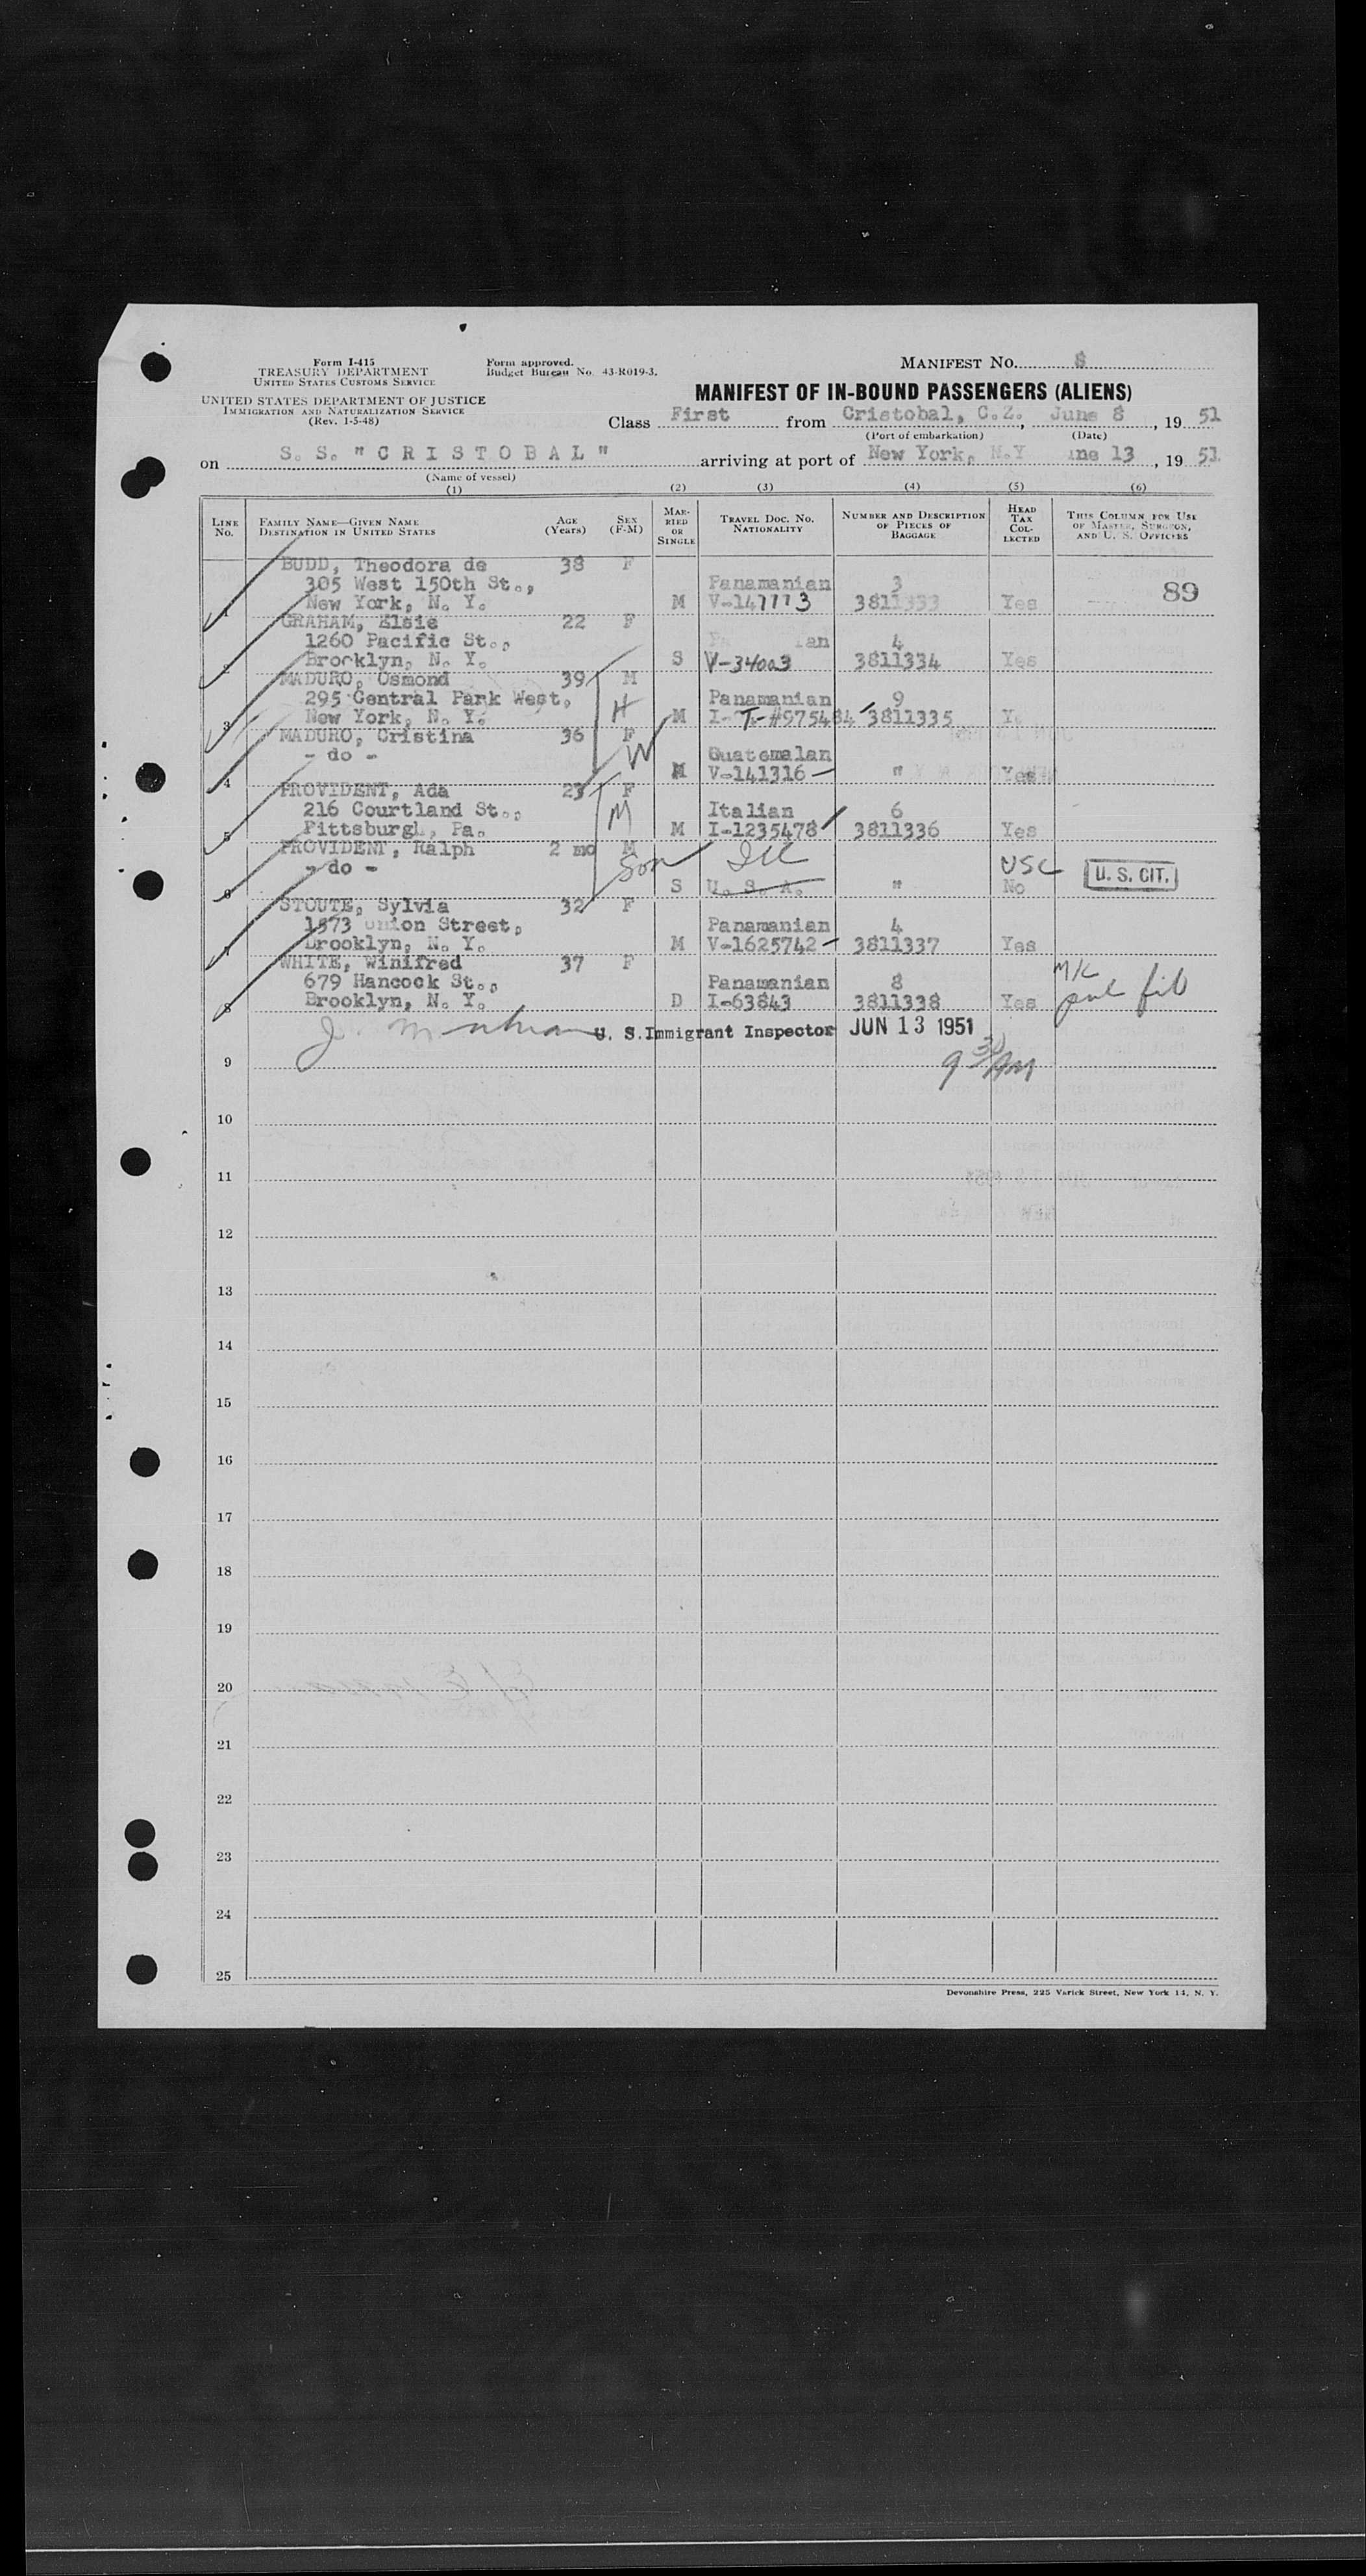 Form I-415
TREASURY DEPARTMENT
UNITED STATES CUSTOMS SERVICE
UNITED STATES DEPARTMENT OF JUSTICE
IMMIGRATION AND NATURALIZATION SERVICE
(Rev. 1-5-48)
Form approved.
Budget Bureau No. 43-R019-3.
MANIFEST No. 8
MANIFEST OF IN-BOUND PASSENGERS (ALIENS)
Class First from Cristobal, C.Z., June 8, 19 51
(Port of embarkation) (Date)
on S. S. "CRISTOBAL" arriving at port of New York, N.Y une 13, 19 51
(Name of vessel)
(1) (2) (3) (4) (5) (6)
LINE No. FAMILY NAME—GIVEN NAME DESTINATION IN UNITED STATES AGE (Years) SEX (F-M) MARRIED OR SINGLE TRAVEL DOC. NO. NATIONALITY NUMBER AND DESCRIPTION OF PIECES OF BAGGAGE HEAD TAX COLLECTED THIS COLUMN FOR USE OF MASTER, SURGEON, AND U. S. OFFICERS
BUDD, Theodora de 38 F
305 West 150th St., Panamanian 3 89
1 New York, N. Y. M V-147773 3811333 Yes
GRAHAM, Elsie 22 F
1260 Pacific St., Pa ian 4
2 Brooklyn, N. Y. S V-34003 3811334 Yes
MADURO, Osmond 39 M
295 Central Park West, H Panamanian 9
3 New York, N. Y. M I- T-#975484 3811335 Y
MADURO, Cristina 36 F
- do - W Guatemalan
4 M V-141316 " Yes
PROVIDENT, Ada 23 F
216 Courtland St., M Italian 6
5 Pittsburgh, Pa. M I-1235478 3811336 Yes
PROVIDENT, Ralph 2 mo M
- do - Son USC U. S. CIT.
6 S U. S. A. " No
STOUTE, Sylvia 32 F
1573 Union Street, Panamanian 4
7 Brooklyn, N. Y. M V-1625742 3811337 Yes
WHITE, Winifred 37 F
679 Hancock St., Panamanian 8 M/K
8 Brooklyn, N. Y. D I-63843 3811338 Yes
U. S. Immigrant Inspector JUN 13 1951
9 9 30 AM
10
11
12
13
14
15
16
17
18
19
20
21
22
23
24
25
Devonshire Press, 225 Varick Street, New York 14, N. Y.